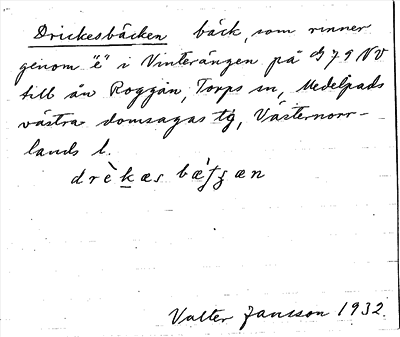 Drickesbäcken bäck, som rinner
genom "ë" i Vinterängen på G 7 9 NV
till ån Roggån, Torps sn, Medelpads
västra domsagas tg, Västernorr-
lands l.
drèkæs bæ
Valter Jansson 1932.